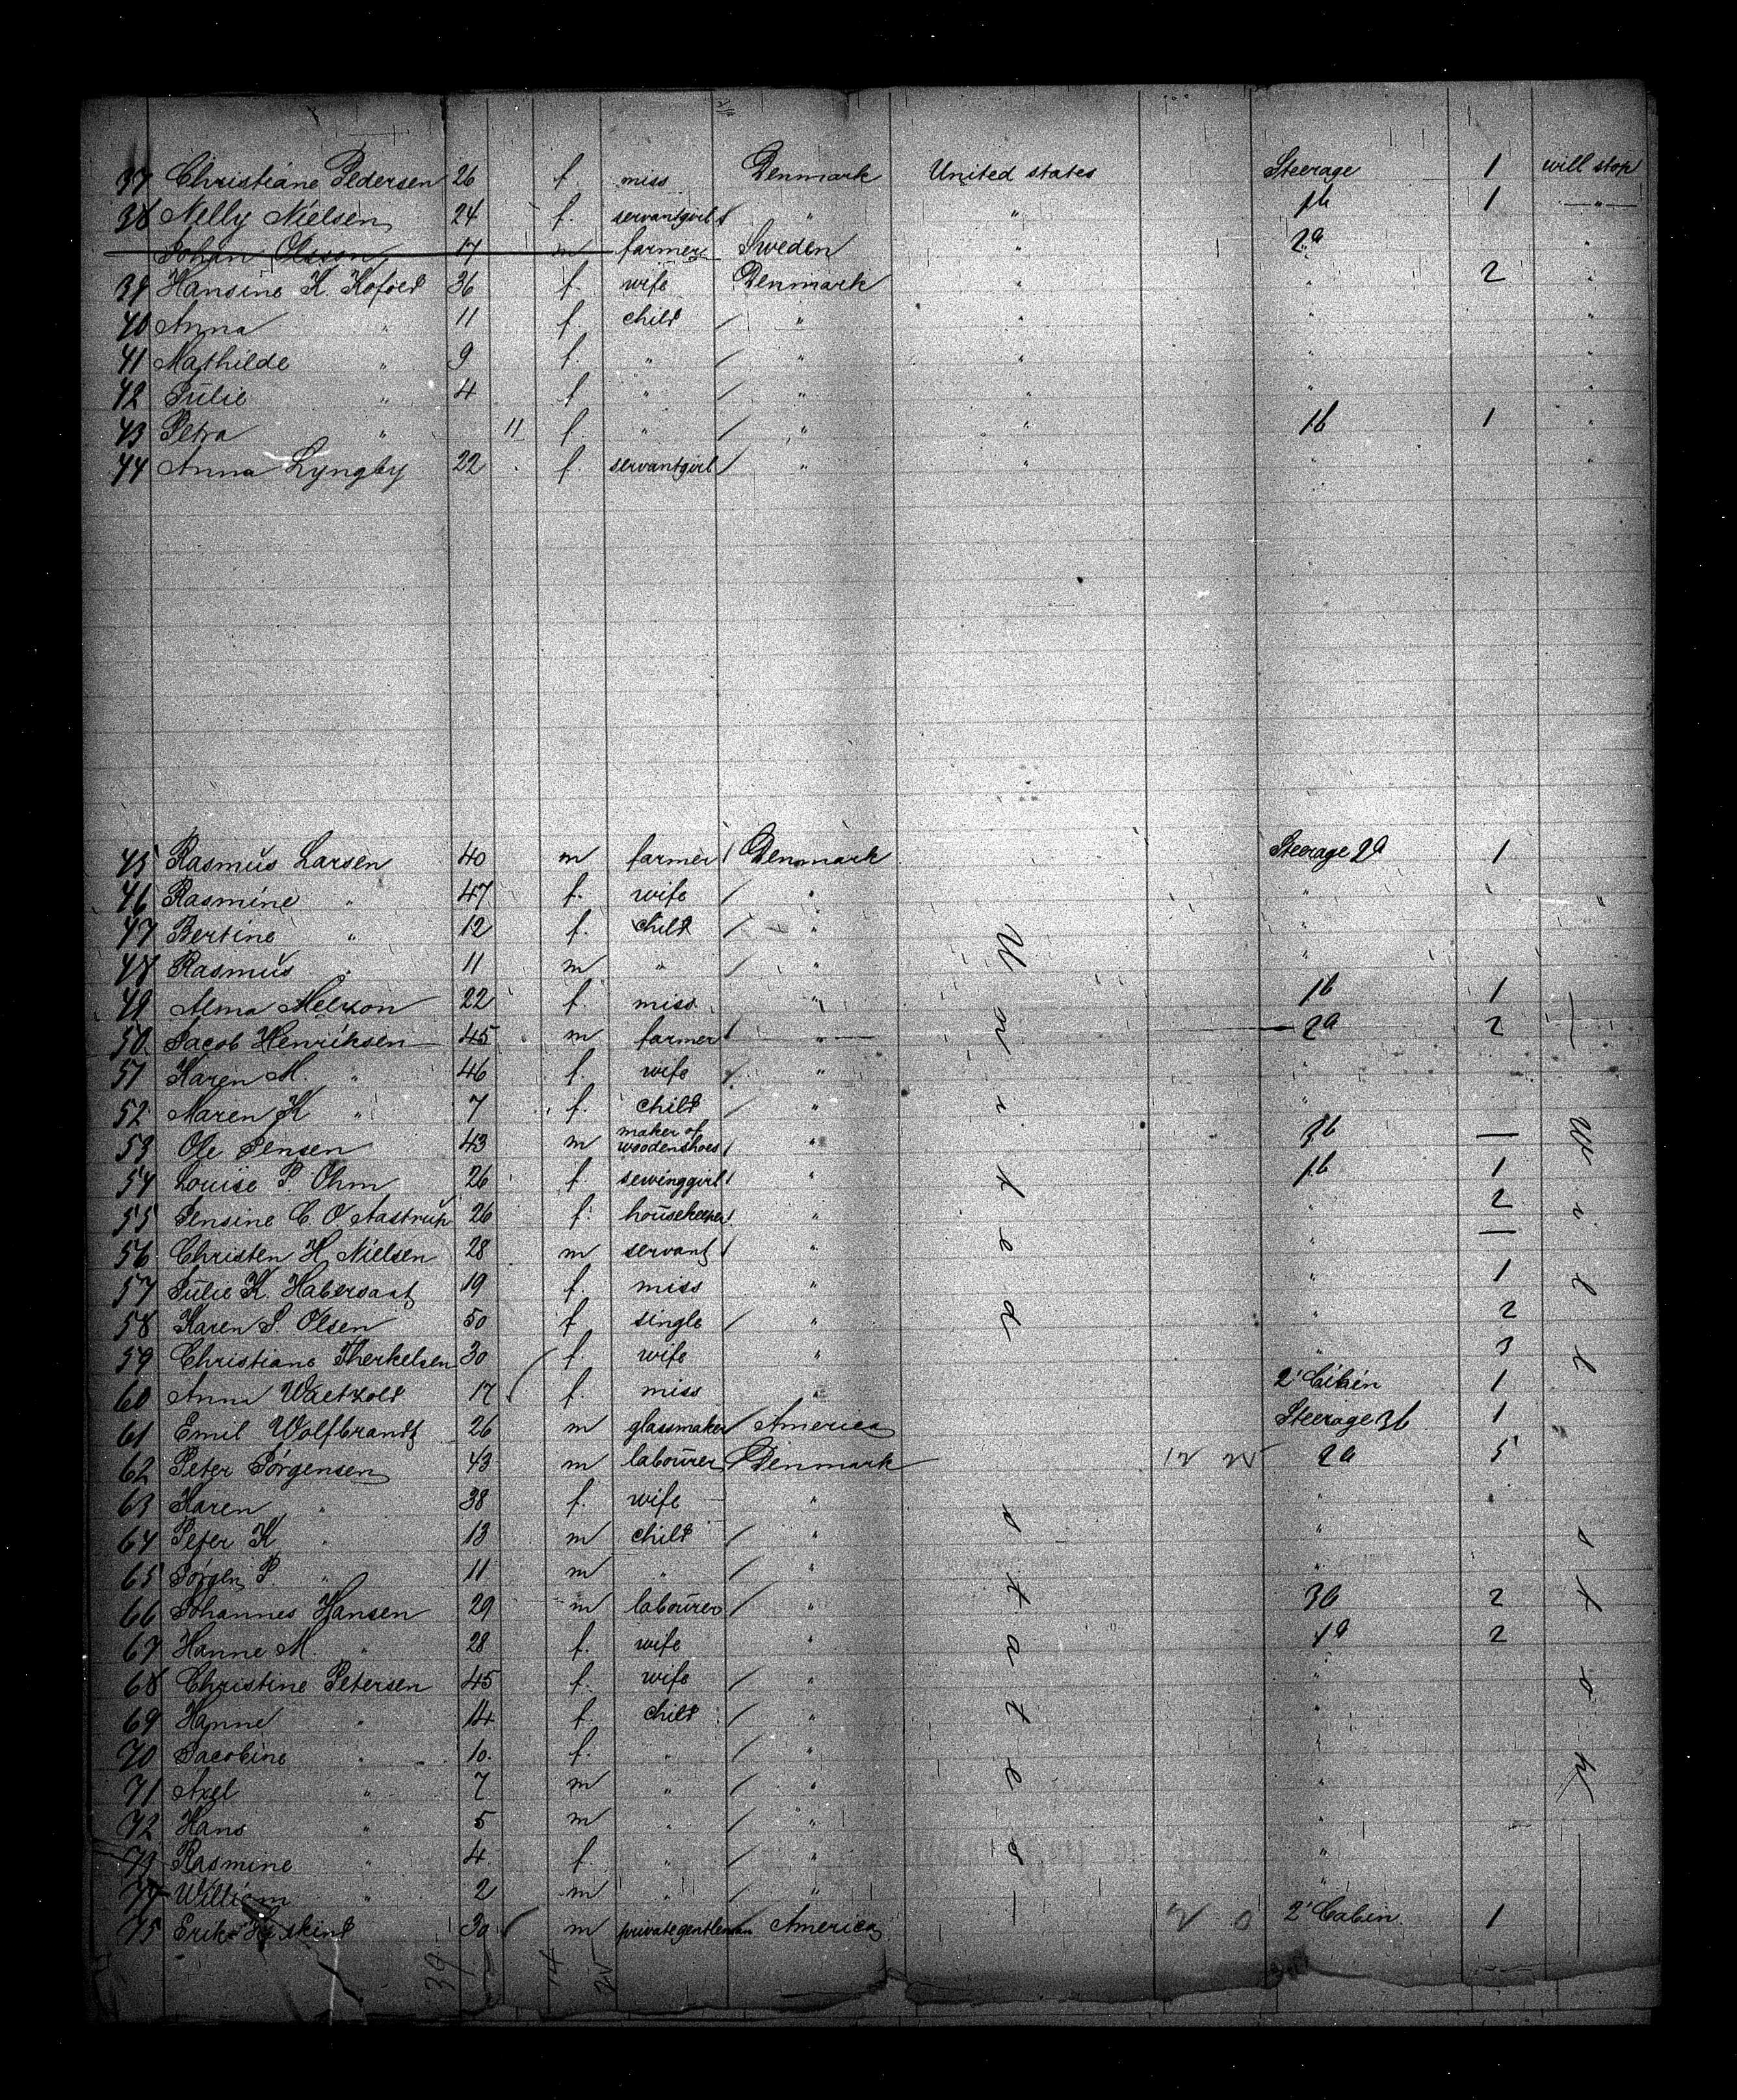 37 Christiane Pedersen 26 f. miss Denmark United states Steerage 1 will stop
38 Nelly Nielsen 24 f. servantgirl " " 1b 1 "
Johan Olsson 17 m farmer Sweden " 2a "
39 Hansine K. Kofoed 36 f. wife Denmark " " 2 "
40 Anna " 11 f child " " " "
41 Mathilde " 9 f. " " " " "
42 Julie " 4 f " " " " "
43 Petra " 11 f " " " 1b 1 "
44 Anna Lyngby 22 f. servantgirl " " " "
45 Rasmus Larsen 40 m farmer Denmark Steerage 2a 1
46 Rasmine " 47 f. wife " "
47 Bertine " 12 f. child " "
48 Rasmus " 11 m " " "
49 Alma 22 f. miss " 1b 1
50 Jacob Henriksen 45 m farmer " 2a 2
51 Karen M. " 46 f. wife " "
52 Maren K " 7 f. child " "
53 Ole Jensen 43 m maker of woodenshoes " 3b —
54 Louise P. Ohm 26 f. sewinggirl " 1b 1
55 Jensine C. O. Aastrup 26 f. housekeeper " " 2
56 Christen H. Nielsen 28 m servant " " —
57 Julie K. Habersaat 19 f. miss " " 1
58 Karen S. Olsen 50 f single " " 2
59 Christiane Therkelsen 30 f. wife " " 3
60 Anna Waetzold 17 f. miss " 2' Cabin 1
61 Emil Wolfbrandt 26 m glassmaker America Steerage 3b 1
62 Peter Jörgensen 43 m labourer Denmark 2a 5
63 Karen " 38 f. wife " "
64 Peter K " 13 m child " "
65 Jörgen P. " 11 m " " "
66 Johannes Hansen 29 m labourer " 3b 2
67 Hanne M. " 28 f. wife " 1a 2
68 Christine Petersen 45 f. wife " "
69 Hanne " 14 f. child " "
70 Jacobine " 10 f. " " "
71 Axel " 7 m " " "
72 Hans " 5 m " " "
73 Rasmine " 4 f. " " "
74 William " 2 m " " "
75 Erik 30 m privategentleman America 2' Cabin 1
United states
Will stop
39 14 25